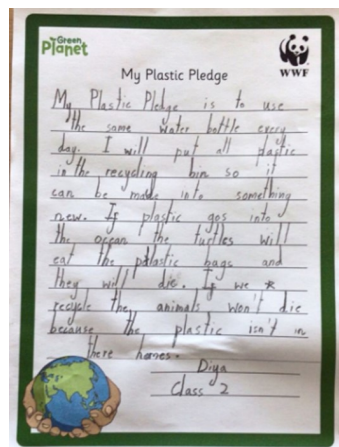 The Green Planet
WWF
My Plastic Pledge
My Plastic Pledge is to use
the same water bottle every
day. I will put all plastic
in the recycling bin so it
can be made into something
new. If plastic gos into
the ocean the turtles will
eat the plastic bags and
they will die. If we
recycle the animals won't die
because the plastic isn't in
there homes.
Diya
Class 2